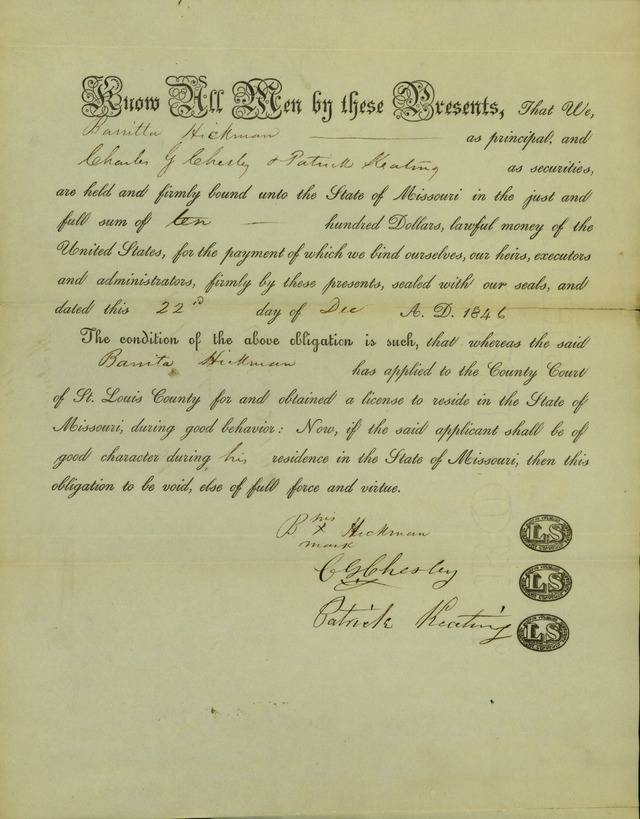 Know All Men by these Presents, That We,
Barritta Hickman as principal, and
Charles G Chesley & Patrick Keating as securities,
are held and firmly bound unto the State of Missouri in the just and
full sum of ten — hundred Dollars, lawful money of the
United States, for the payment of which we bind ourselves, our heirs, executors
and administrators, firmly by these presents, sealed with our seals, and
dated this 22d day of Dec A. D. 1846
The condition of the above obligation is such, that whereas the said
Barrita Hickman has applied to the County Court
of St. Louis County for and obtained a license to reside in the State of
Missouri, during good behavior: Now, if the said applicant shall be of
good character during his residence in the State of Missouri, then this
obligation to be void, else of full force and virtue.
his
B x Hickman LS
mark
C G Chesley LS
Patrick Keating LS